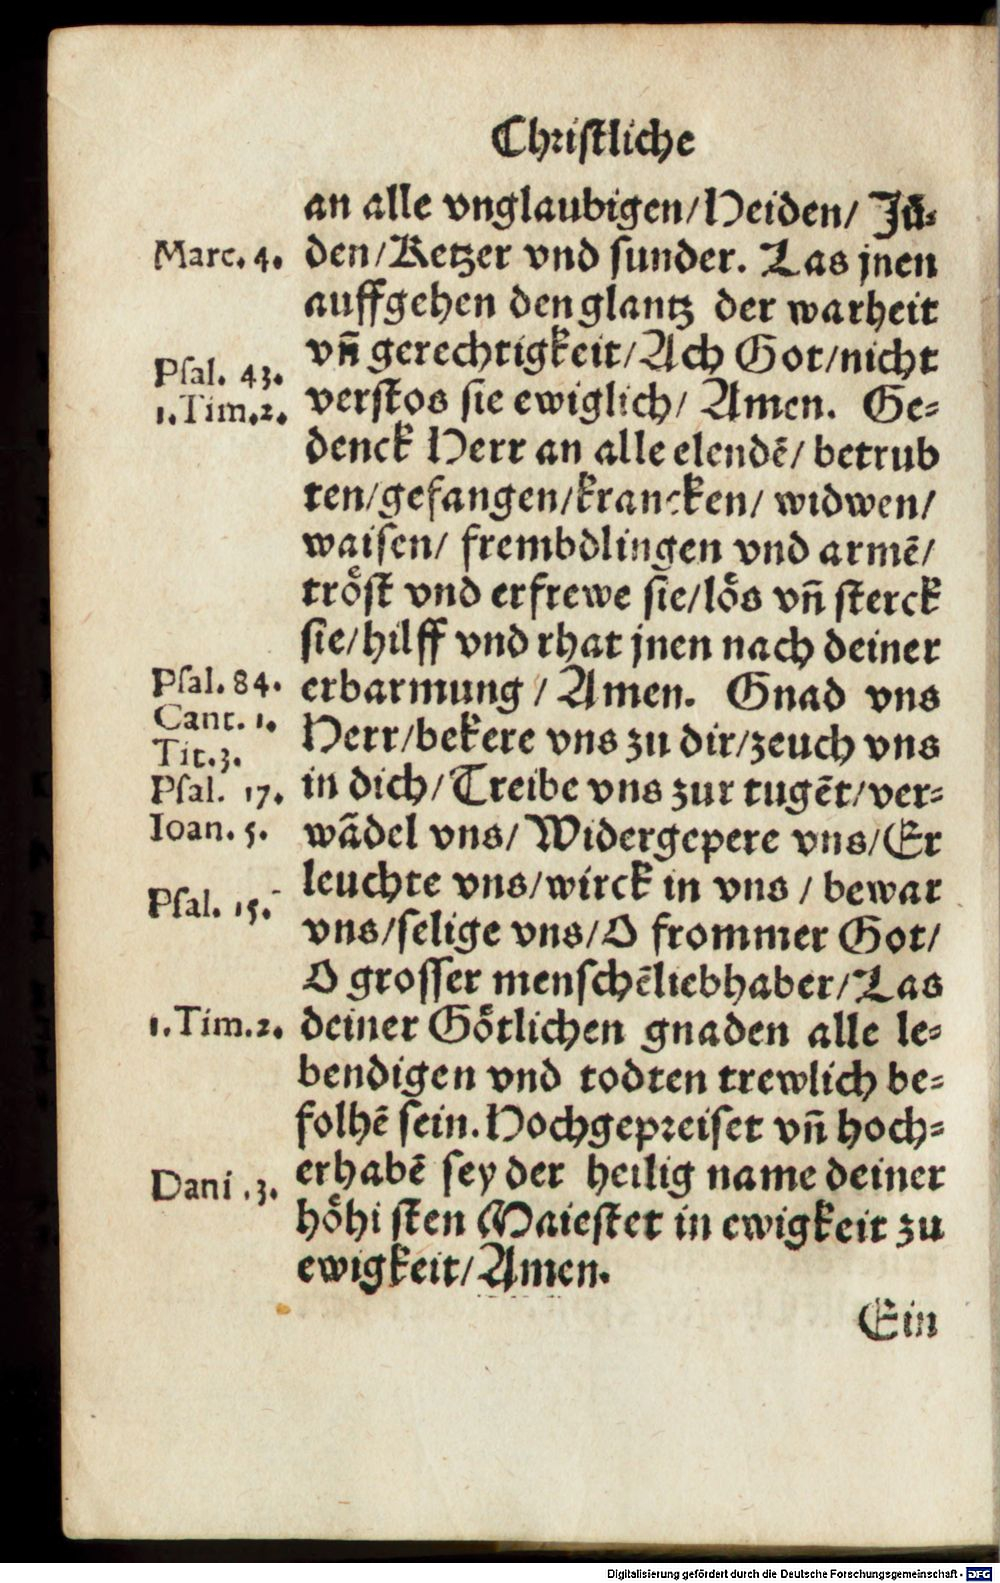 Christliche
an alle vnglaubigen/Heiden/ Jü-
den/Ketzer vnd sunder. Las jnen
auffgehen den glantz der warheit
vn̄ gerechtigkeit/Ach Got/nicht
verstos sie ewiglich/ Amen. Ge-
denck Herr an alle elendē/ betrub
ten/gefangen/krancken/ widwen/
waisen/ frembdlingen vnd armē/
troͤst vnd erfrewe sie/loͤs vn̄ sterck
sie/hilff vnd rhat jnen nach deiner
erbarmung / Amen. Gnad vns
Herr/bekere vns zu dir/zeuch vns
in dich/Treibe vns zur tugēt/ver-
wādel vns/ Widergepere vns/Er
leuchte vns/wirck in vns / bewar
vns/selige vns/O frommer Got/
O grosser menschēliebhaber/Las
deiner Goͤtlichen gnaden alle le-
bendigen vnd todten trewlich be-
folhē sein. Hochgepreiset vn̄ hoch-
erhabē sey der heilig name deiner
hoͤhisten Maiestet in ewigkeit zu
ewigkeit/Amen.
Ein
Marc. 4.
Psal. 43.
1.Tim.2.
Psal. 84.
Cant. 1.
Tit.3.
Psal. 17.
Ioan. 5.
Psal. 15.
1.Tim.2.
Dani .3.
Digitalisierung gefördert durch die Deutsche Forschungsgemeinschaft - DFG